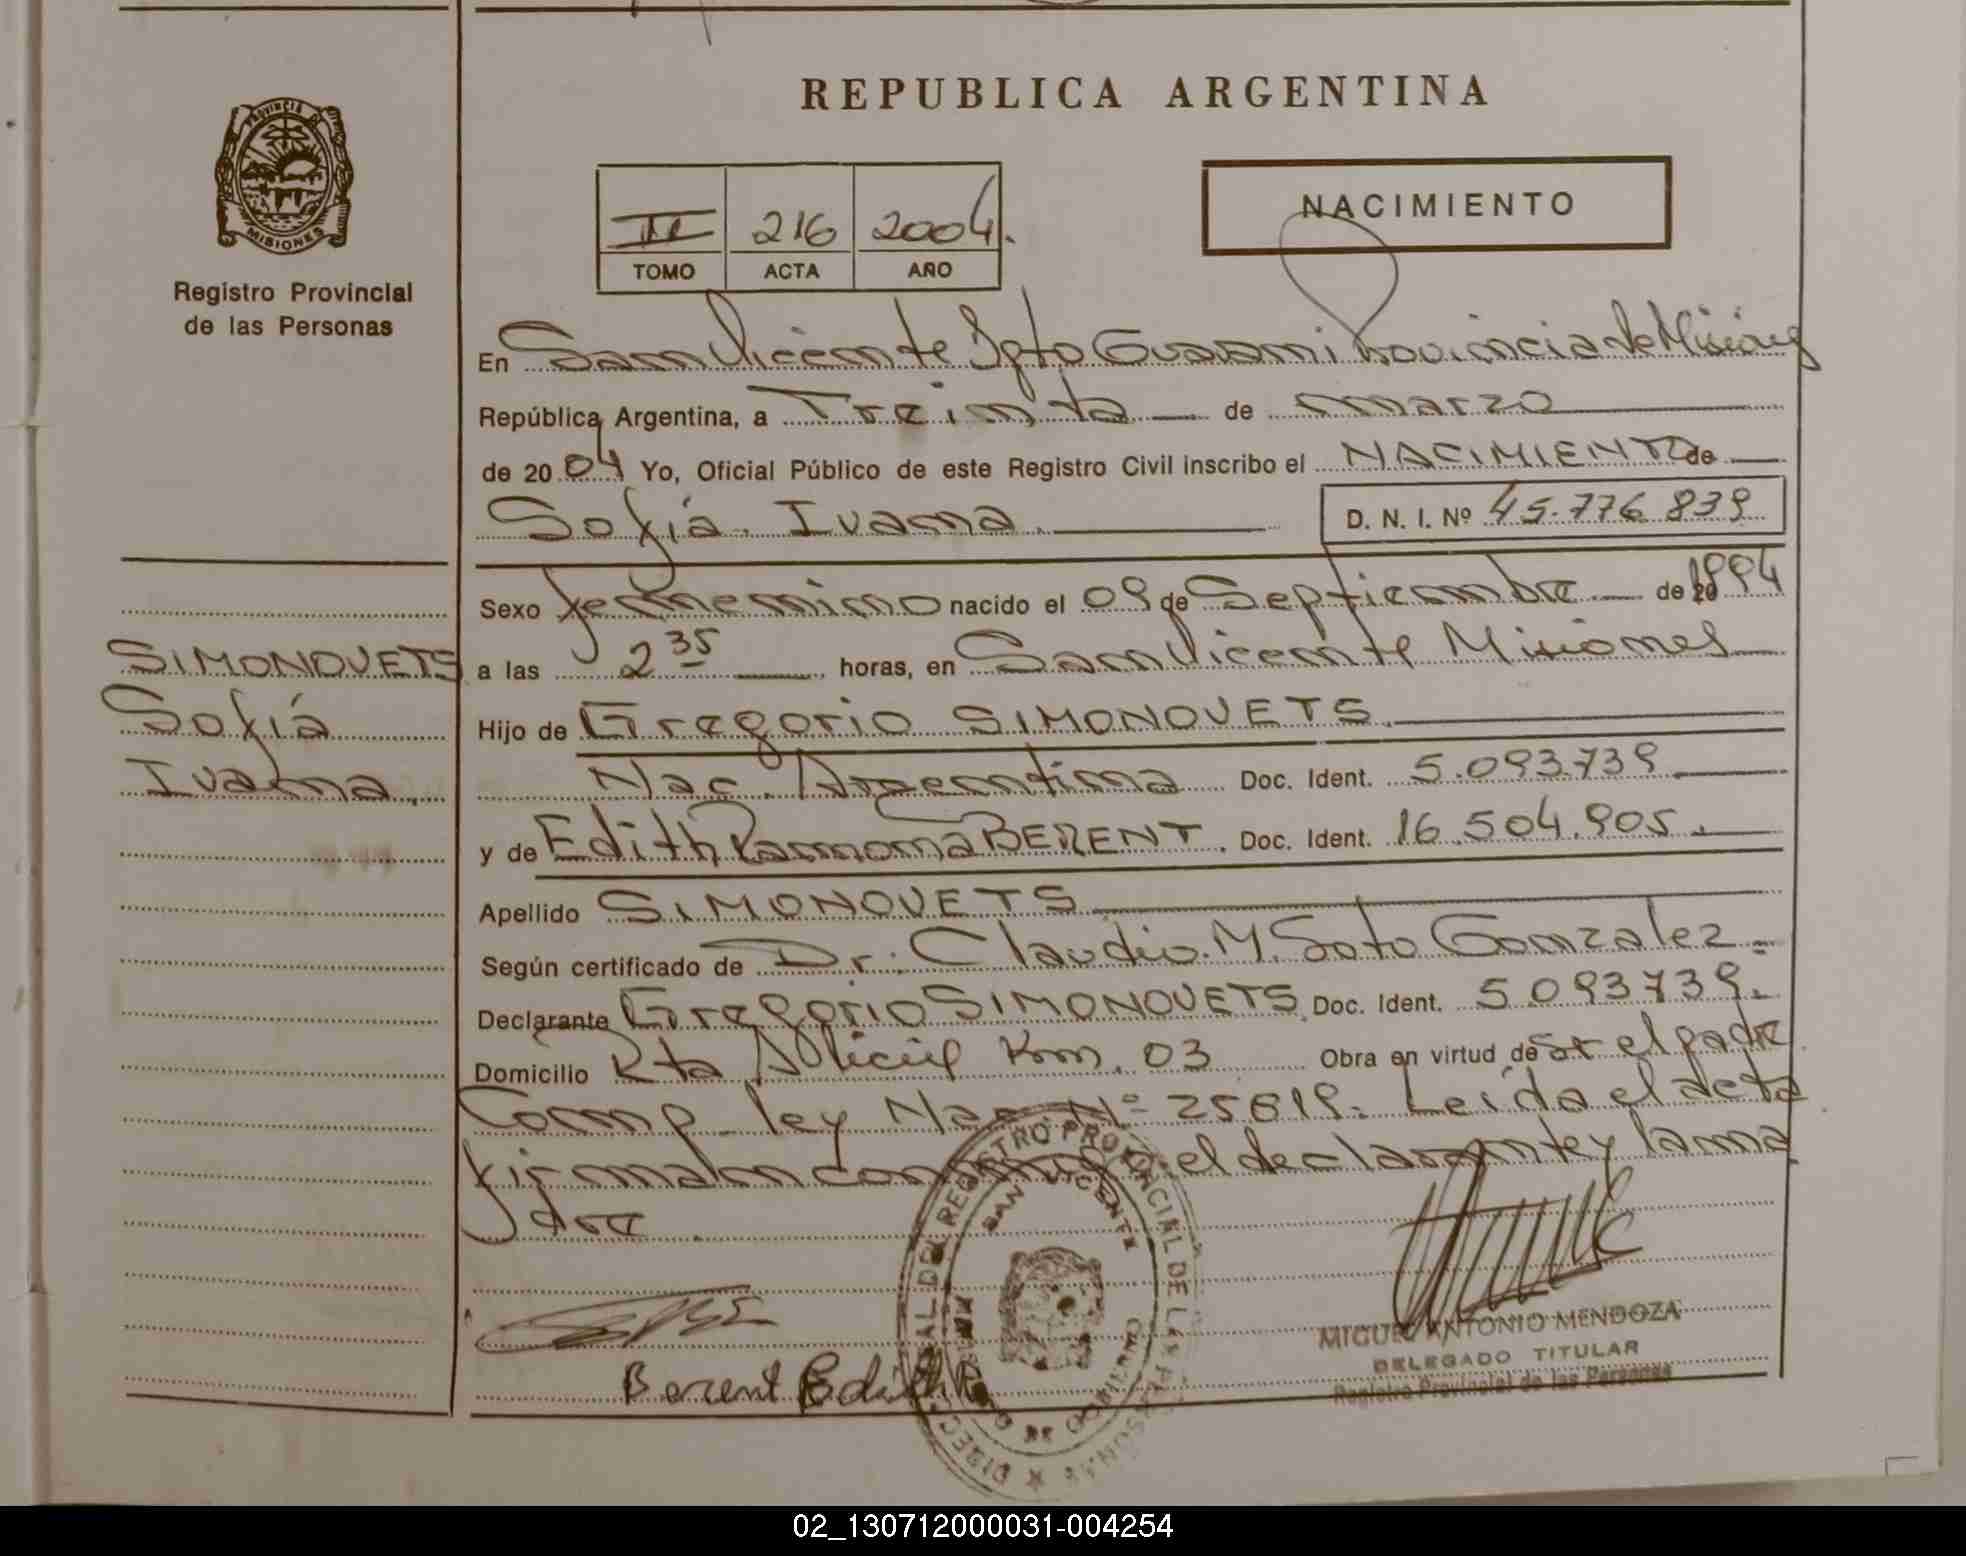 REPUBLICA ARGENTINA
PROVINCIA DE
MISIONES
Registro Provincial
de las Personas
II 216 2004.
TOMO ACTA AÑO
NACIMIENTO
En San Vicente Dpto Guarani Provincia de Misiones
República Argentina, a Treinta de marzo
de 2004 Yo, Oficial Público de este Registro Civil inscribo el NACIMIENTO de
Sofía Ivana. D. N. I. Nº 45.776.839
Sexo femenino nacido el 09 de Septiembre de 1994
a las 2 35 horas, en San Vicente Misiones
SIMONOVETS
Sofía
Ivana.
Hijo de Gregorio SIMONOVETS.
Nac. Argentina Doc. Ident. 5.093.739
y de Edith Ramona BERENT. Doc. Ident. 16.504.905.
Apellido SIMONOVETS
Según certificado de Dr. Claudio. M. Soto Gonzalez =
Declarante Gregorio SIMONOVETS. Doc. Ident. 5.093739.
Domicilio Rta Km. 03 Obra en virtud de Sr el padre
Comp ley Nac. Nº 25819. Leída el acta
firman conmigo el declarante y la ma
dre.
DIRECC. GRAL. DEL REGISTRO PROVINCIAL DE LAS PERSONAS
SAN VICENTE
MINISTERIO DE GOBIERNO
Berent Edith R
MIGUEL ANTONIO MENDOZA
DELEGADO TITULAR
Registro Provincial de las Personas
02_130712000031-004254